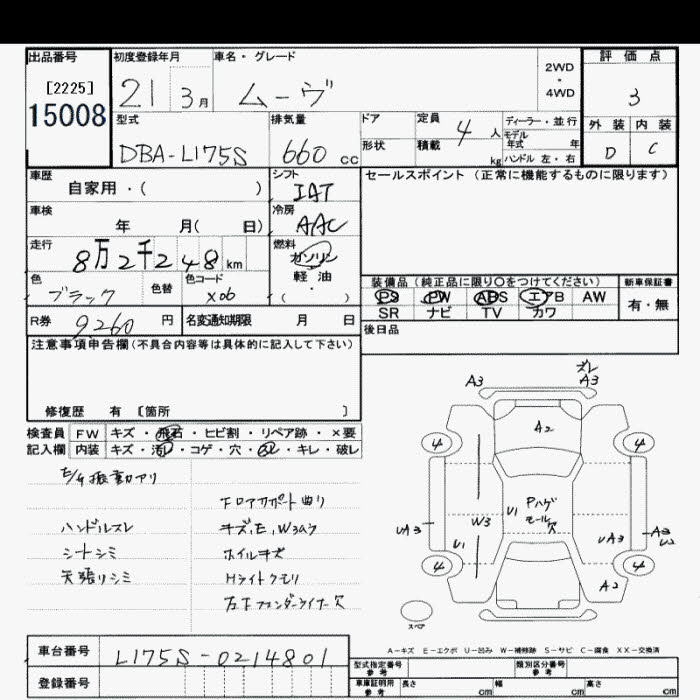 出品番号 初度登録年月 車名・グレード 評価点
[2225] 15008
21 3月 ムーヴ 2WD・4WD 3
型式 排気量 ドア 定員 4人 ディーラー・並行 外装 内装
DBA-L175S 660cc 形状 積載 kg モデル年式 年 ハンドル 左・右 D C
車歴 シフト セールスポイント(正常に機能するものに限ります)
自家用・( ) IAT
車検 冷房
年 月( 日) AAC
走行 燃料
8万2千248km ガソリン
色 色替 色コード 軽油
ブラック X06 ・( )
装備品(純正品に限り○をつけてください) 新車保証書
PS PW ABS エアB AW 有・無
SR ナビ TV カワ
R券 9260円 名変通知期限 月 日 後日品
注意事項申告欄(不具合内容等は具体的に記入して下さい)
修復歴 有 [箇所 ]
検査員 FW キズ・飛石・ヒビ割・リペア跡・×要
記入欄 内装 キズ・汚れ・コゲ・穴・・キレ・破レ
振動アリ
下ロアサポート曲リ
ハンドルスレ キズ,E,W3ムラ
シートシミ ホイルキズ
天張リシミ Hライトクモリ
左右下フェンダーライナー穴
A3 ズレ A3
A2
4 4
U1 Pハゲ モール穴
UA3 W3 UA3 A3
U1
4 4
A2
スペア
A-キズ E-エクボ U-凹み W-補修跡 S-サビ C-腐食 XX-交換済
車台番号 L175S-0214801
登録番号
型式指定番号 参考 類別区分番号 参考
車庫証明用 参考 長さ cm 幅 cm 高さ cm